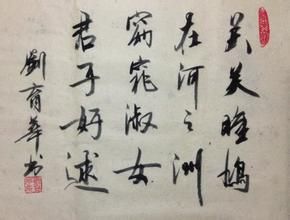 关关雎鸠
在河之洲
窈窕淑女
君子好逑
劉育華书